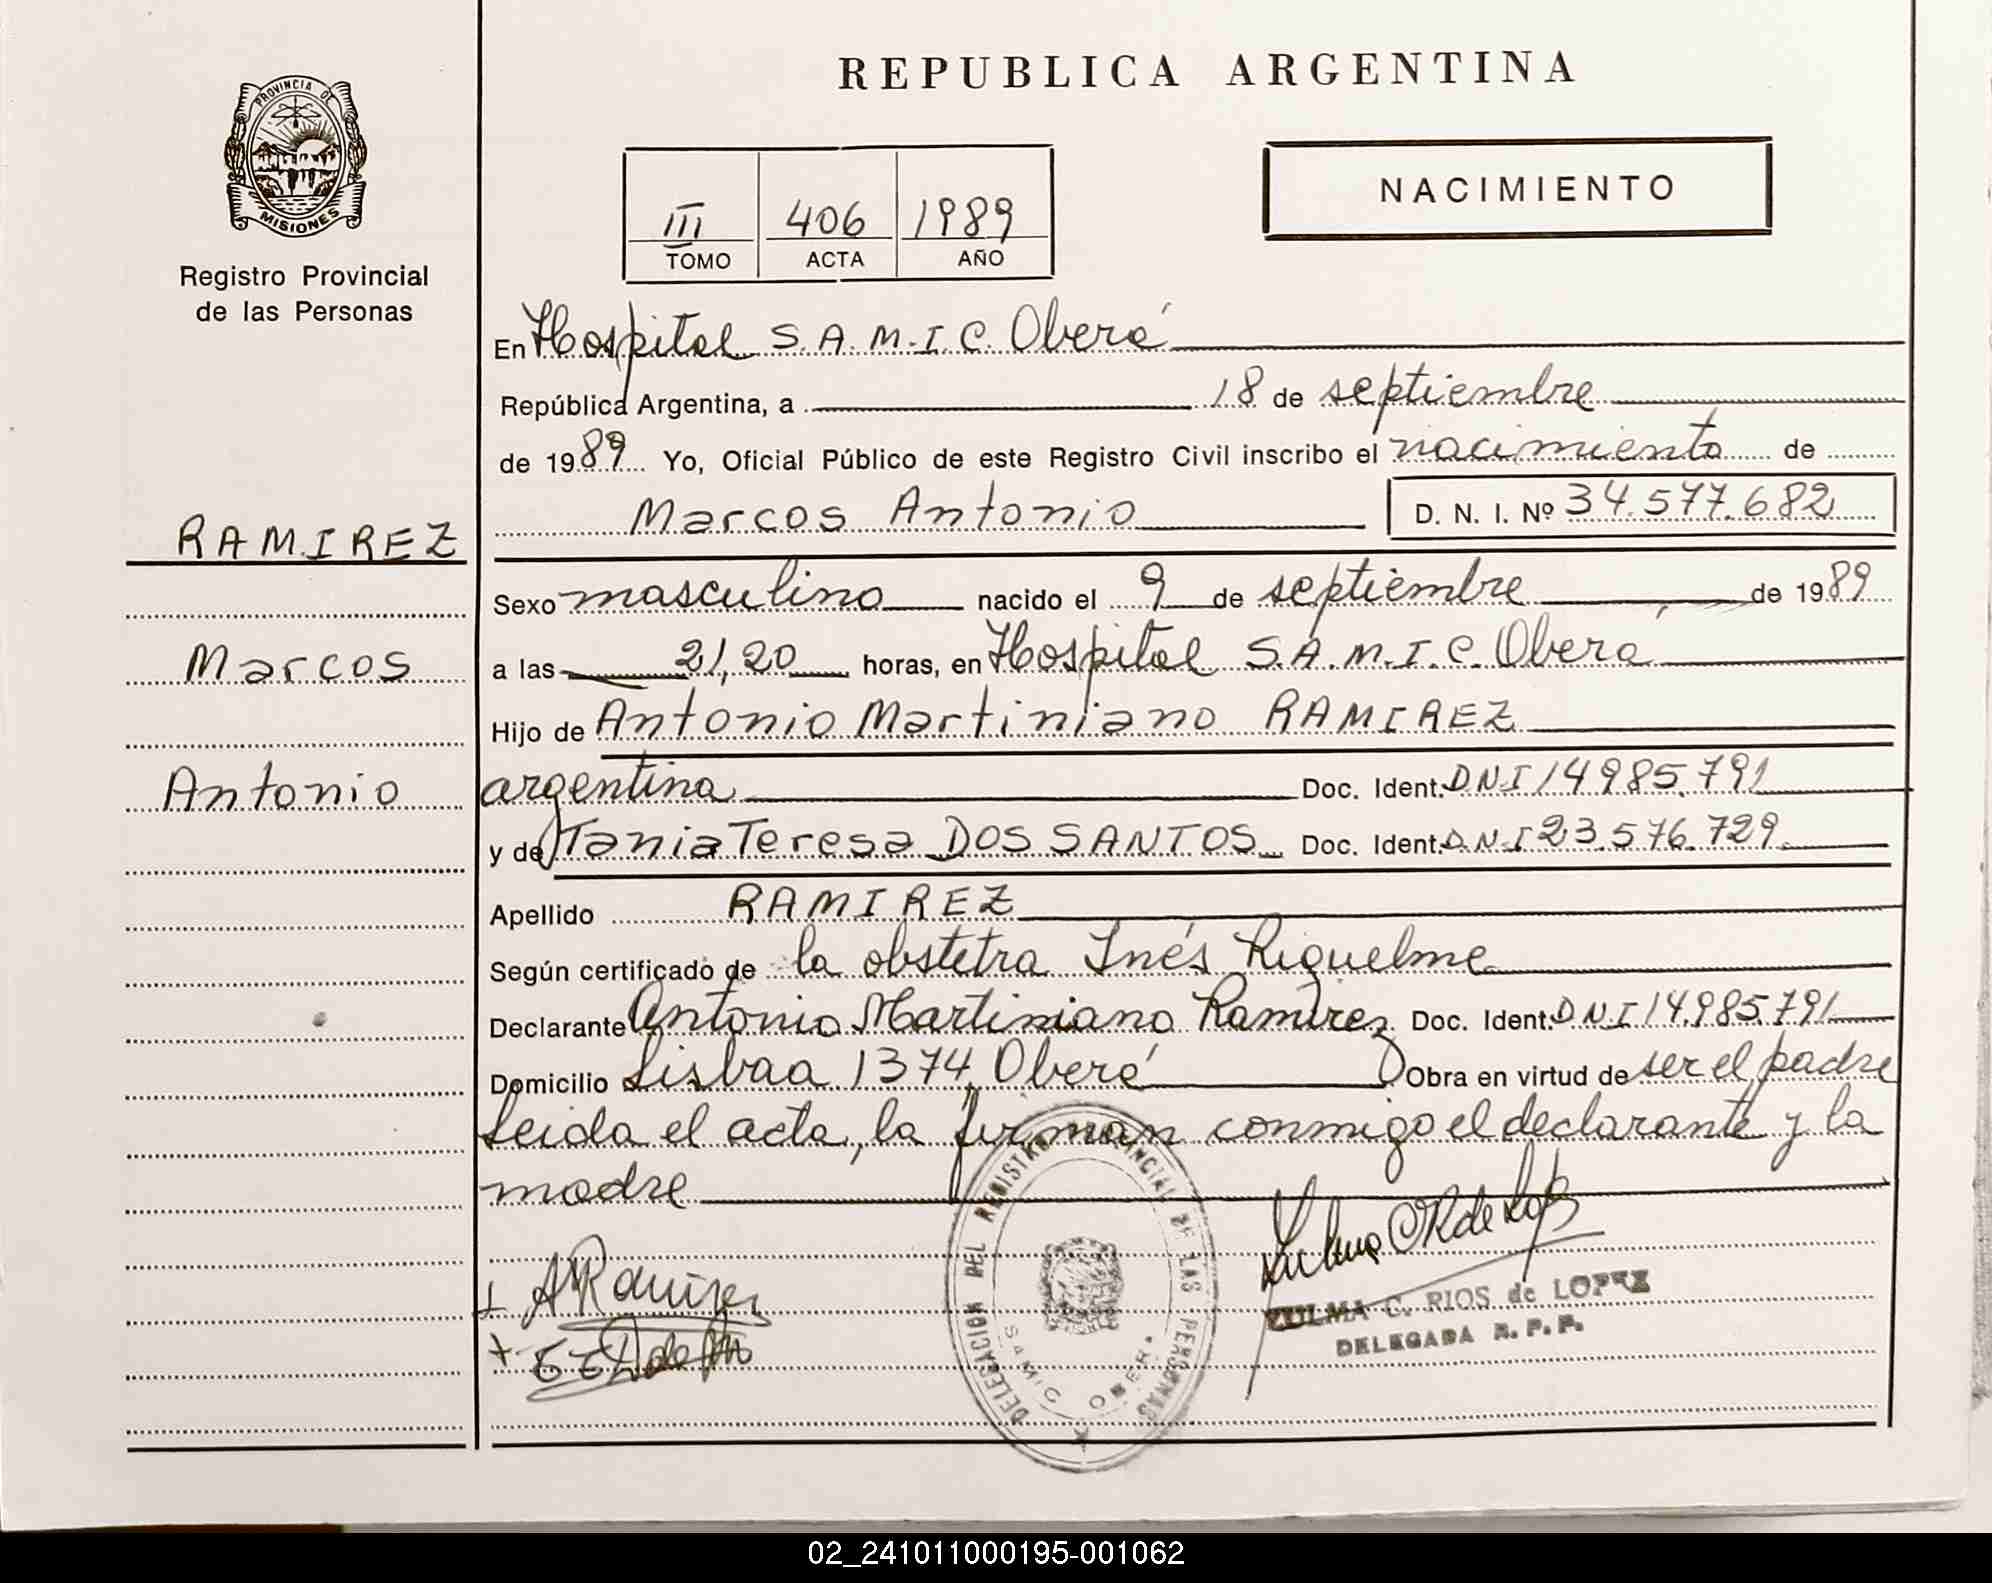 REPUBLICA ARGENTINA
PROVINCIA DE
MISIONES
Registro Provincial
de las Personas
NACIMIENTO
III 406 1989
TOMO ACTA AÑO
En Hospital S.A.M.I.C. Oberá
República Argentina, a 18 de septiembre
de 1989 Yo, Oficial Público de este Registro Civil inscribo el nacimiento de
Marcos Antonio D. N. I. Nº 34.577.682
RAMIREZ
Marcos
Antonio
Sexo masculino nacido el 9 de septiembre de 1989
a las 21,20 horas, en Hospital S.A.M.I.C. Oberá
Hijo de Antonio Martiniano RAMIREZ
argentina Doc. Ident. DNI 14.985.791
y de Tania Teresa DOS SANTOS Doc. Ident. D.N.I 23.576.729
Apellido RAMIREZ
Según certificado de la obstetra Inés Riquelme
Declarante Antonio Martiniano Ramirez Doc. Ident. DNI 14.985.791
Domicilio Lisboa 1374, Oberá Obra en virtud de ser el padre
Leida el acta, la firman conmigo el declarante y la
madre
A Ramirez
DELEGACION DEL REGISTRO PROVINCIAL DE LAS PERSONAS
SAMIC OBERA
ZULMA C. RIOS de LOPEZ
DELEGADA R. P. P.
02_241011000195-001062